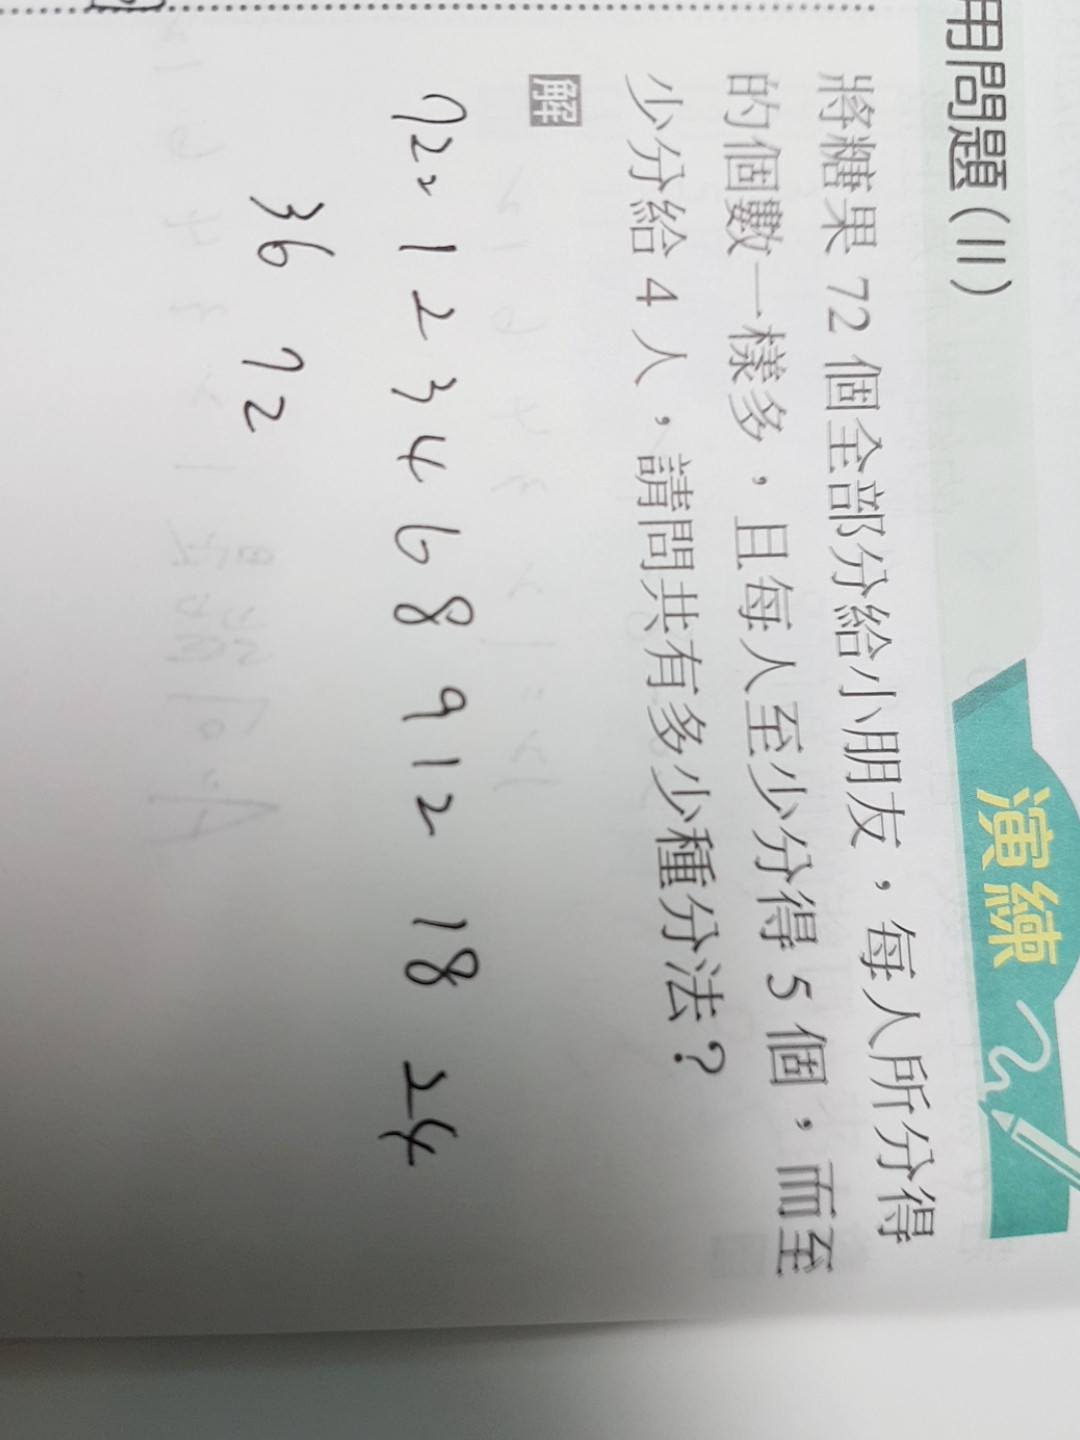 用問題(II)
演練
將糖果 72 個全部分給小朋友，每人所分得
的個數一樣多，且每人至少分得 5 個，而至
少分給 4 人，請問共有多少種分法？
解
72: 1 2 3 4 6 8 9 12 18 24
36 72